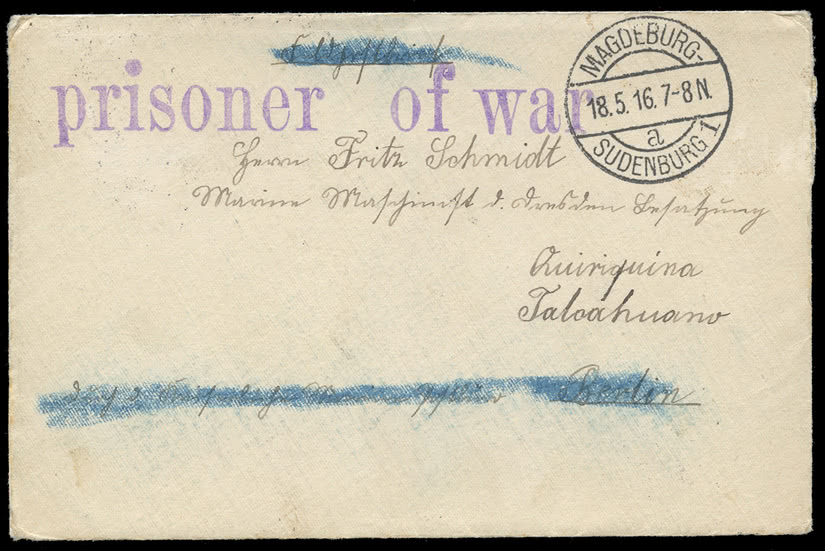 Feldpostbrief
prisoner of war
MAGDEBURG-
18.5.16.7-8N.
a
SUDENBURG 1
Herrn Fritz Schmidt
Marine Maschinist d. Dresden Besatzung
Quiriquina
Talcahuano
Kaiserliche Marine Berlin